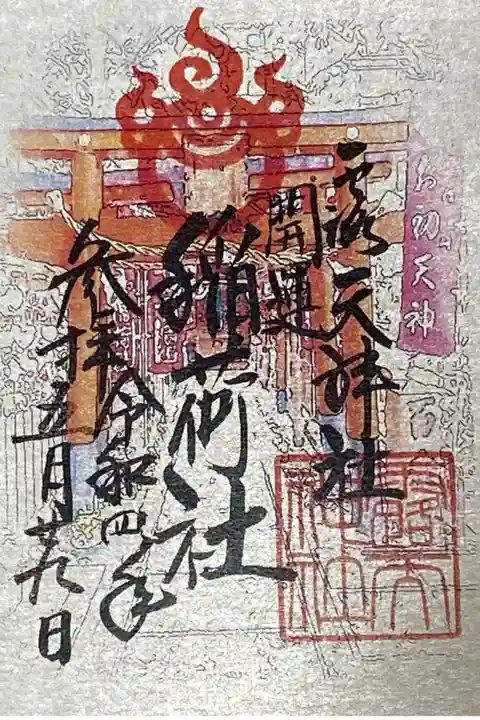 お初天神
露天神社
開運
稲荷社
令和四年
五月廿九日
参拝
露天神社